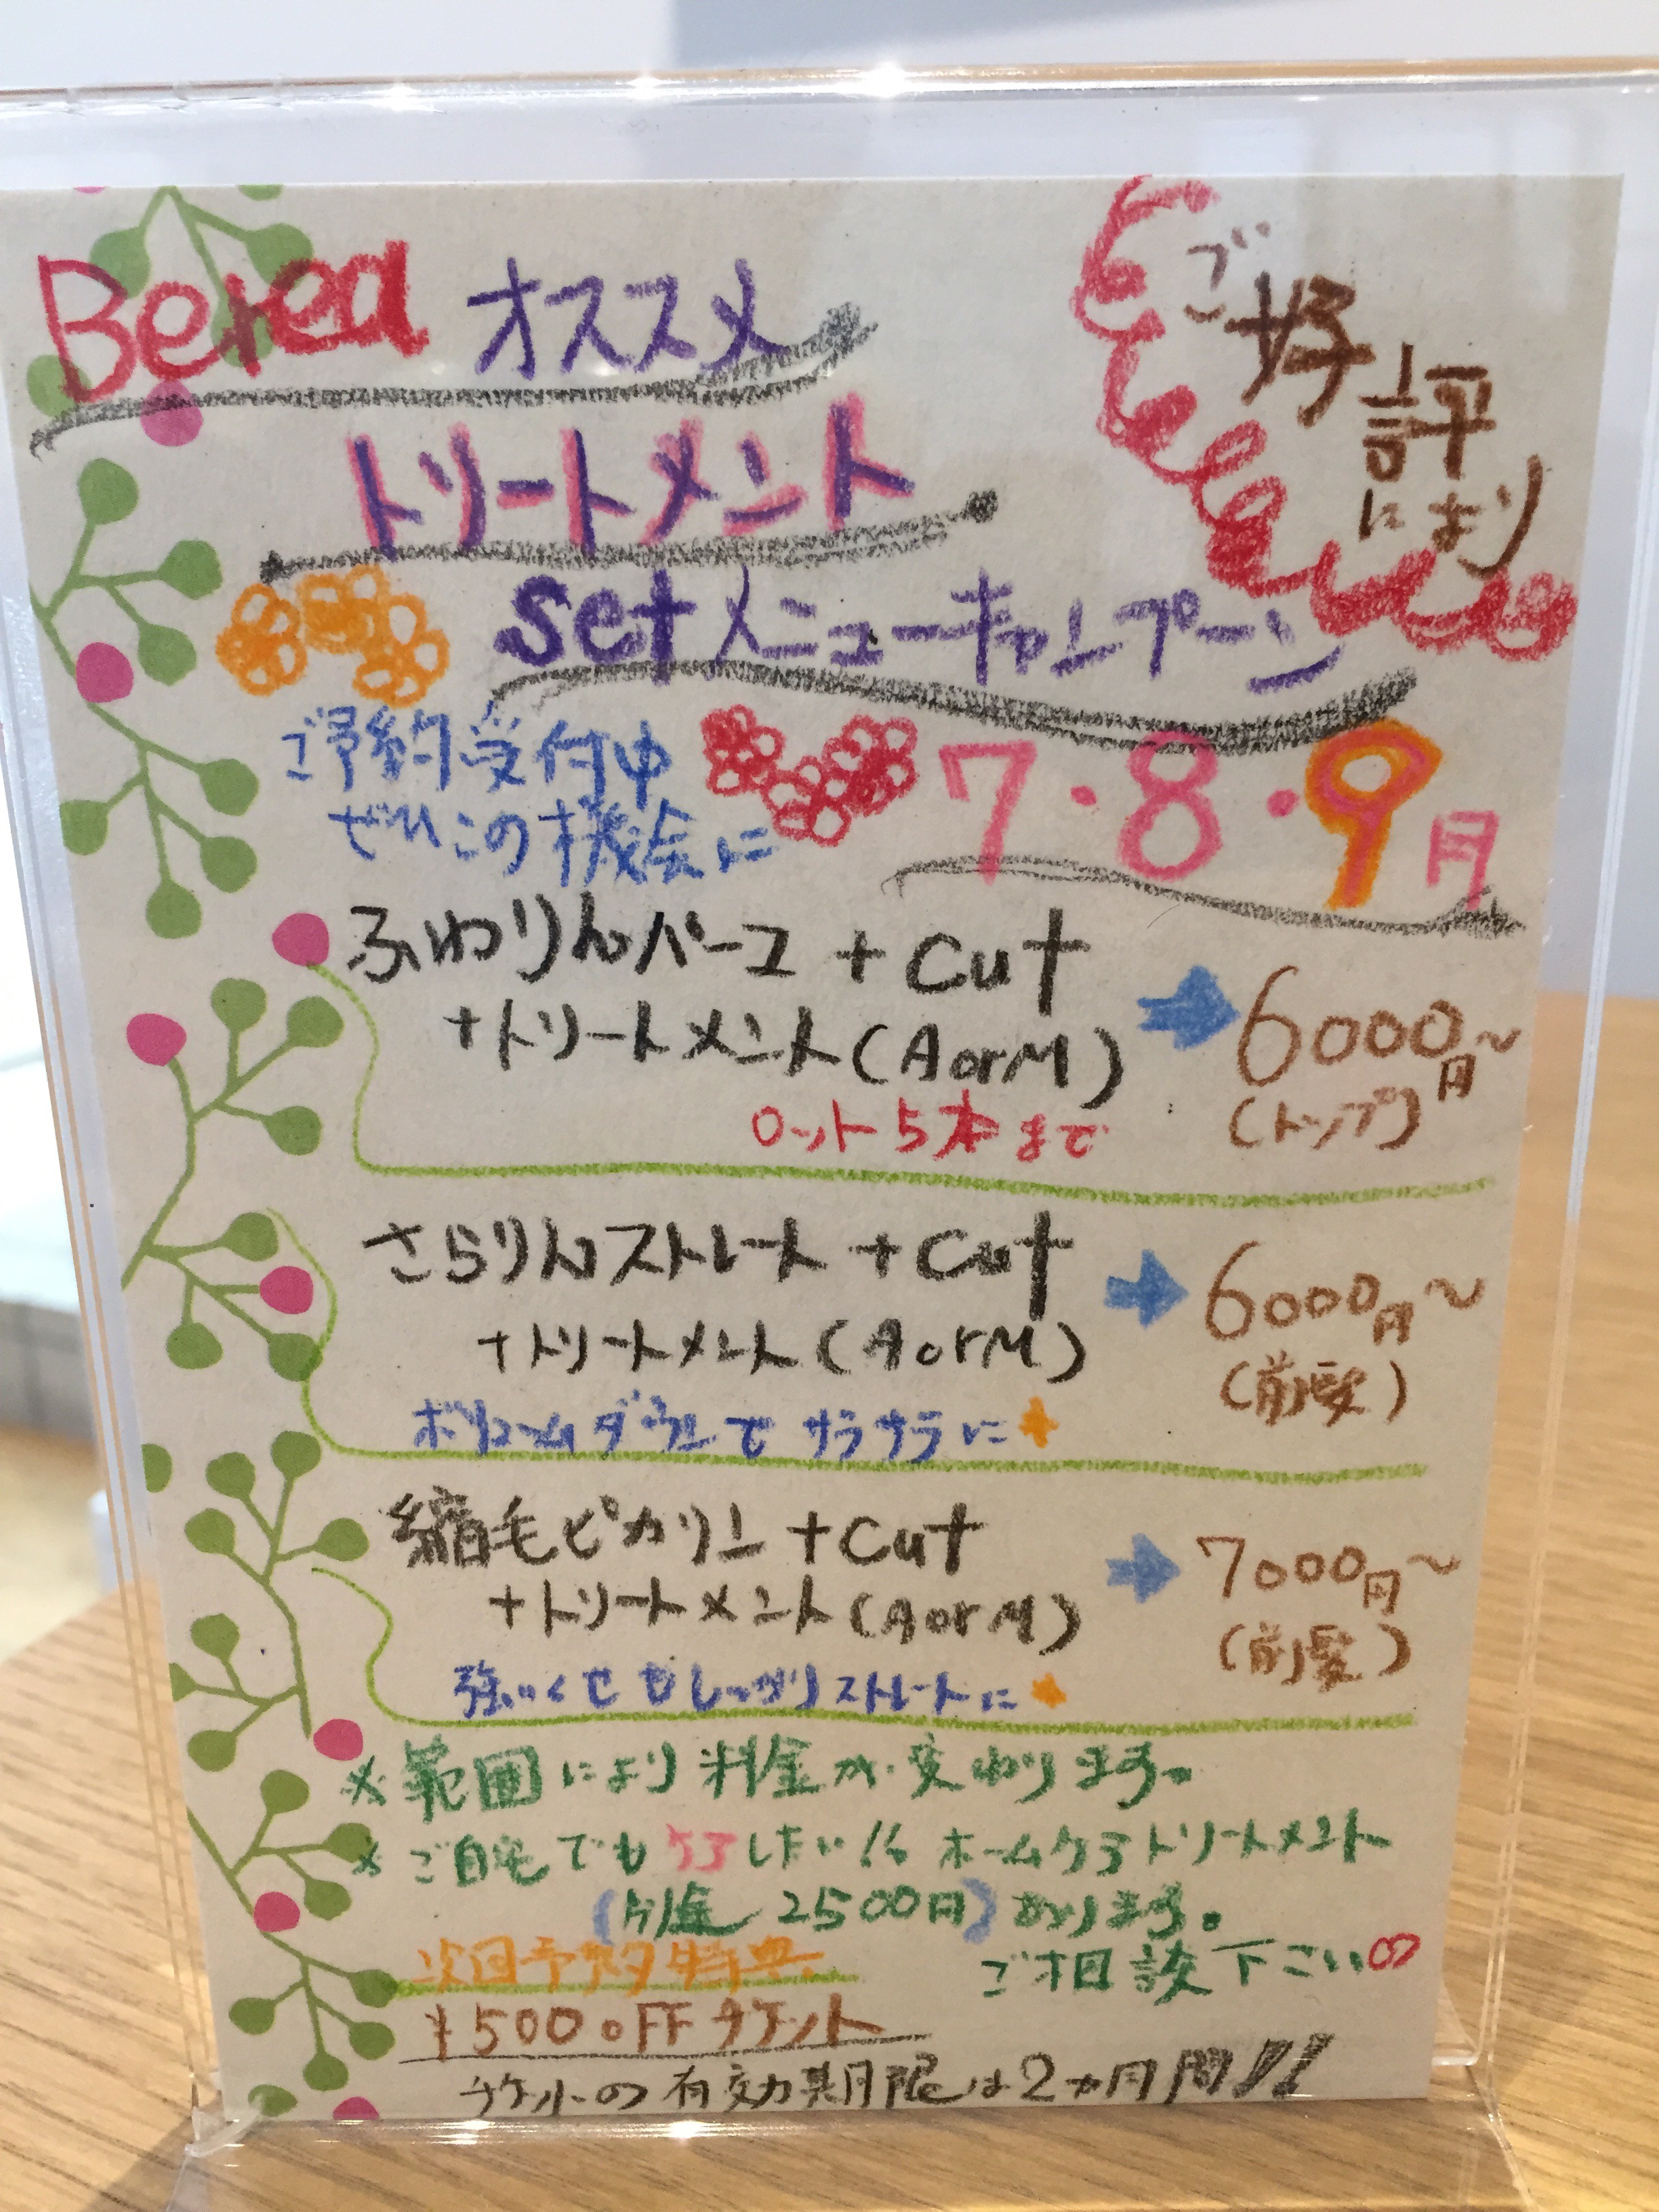 Berea オススメ
ご好評により
トリートメント
setメニューキャンペーン
ご予約受付中
ぜひこの機会に
7・8・9月
ふわりんパース + Cut
+トリートメント(AorM)
6000円~
(トップ)
ロット5本まで
さらりんストレート + Cut
+トリートメント(AorM)
6000円~
(前髪)
ボリュームダウンで サラサラに
縮毛ピカリン + Cut
+トリートメント(AorM)
7000円~
(前髪)
強いくせもしっかりストレートに
※範囲により料金が変わります。
※ご自宅でもケアしたい!! ホームケアトリートメント
(別途 2500円)あります。
ご相談下さい
次回予約特典
¥500 OFFチケット
チケットの有効期限は2ヶ月間!!